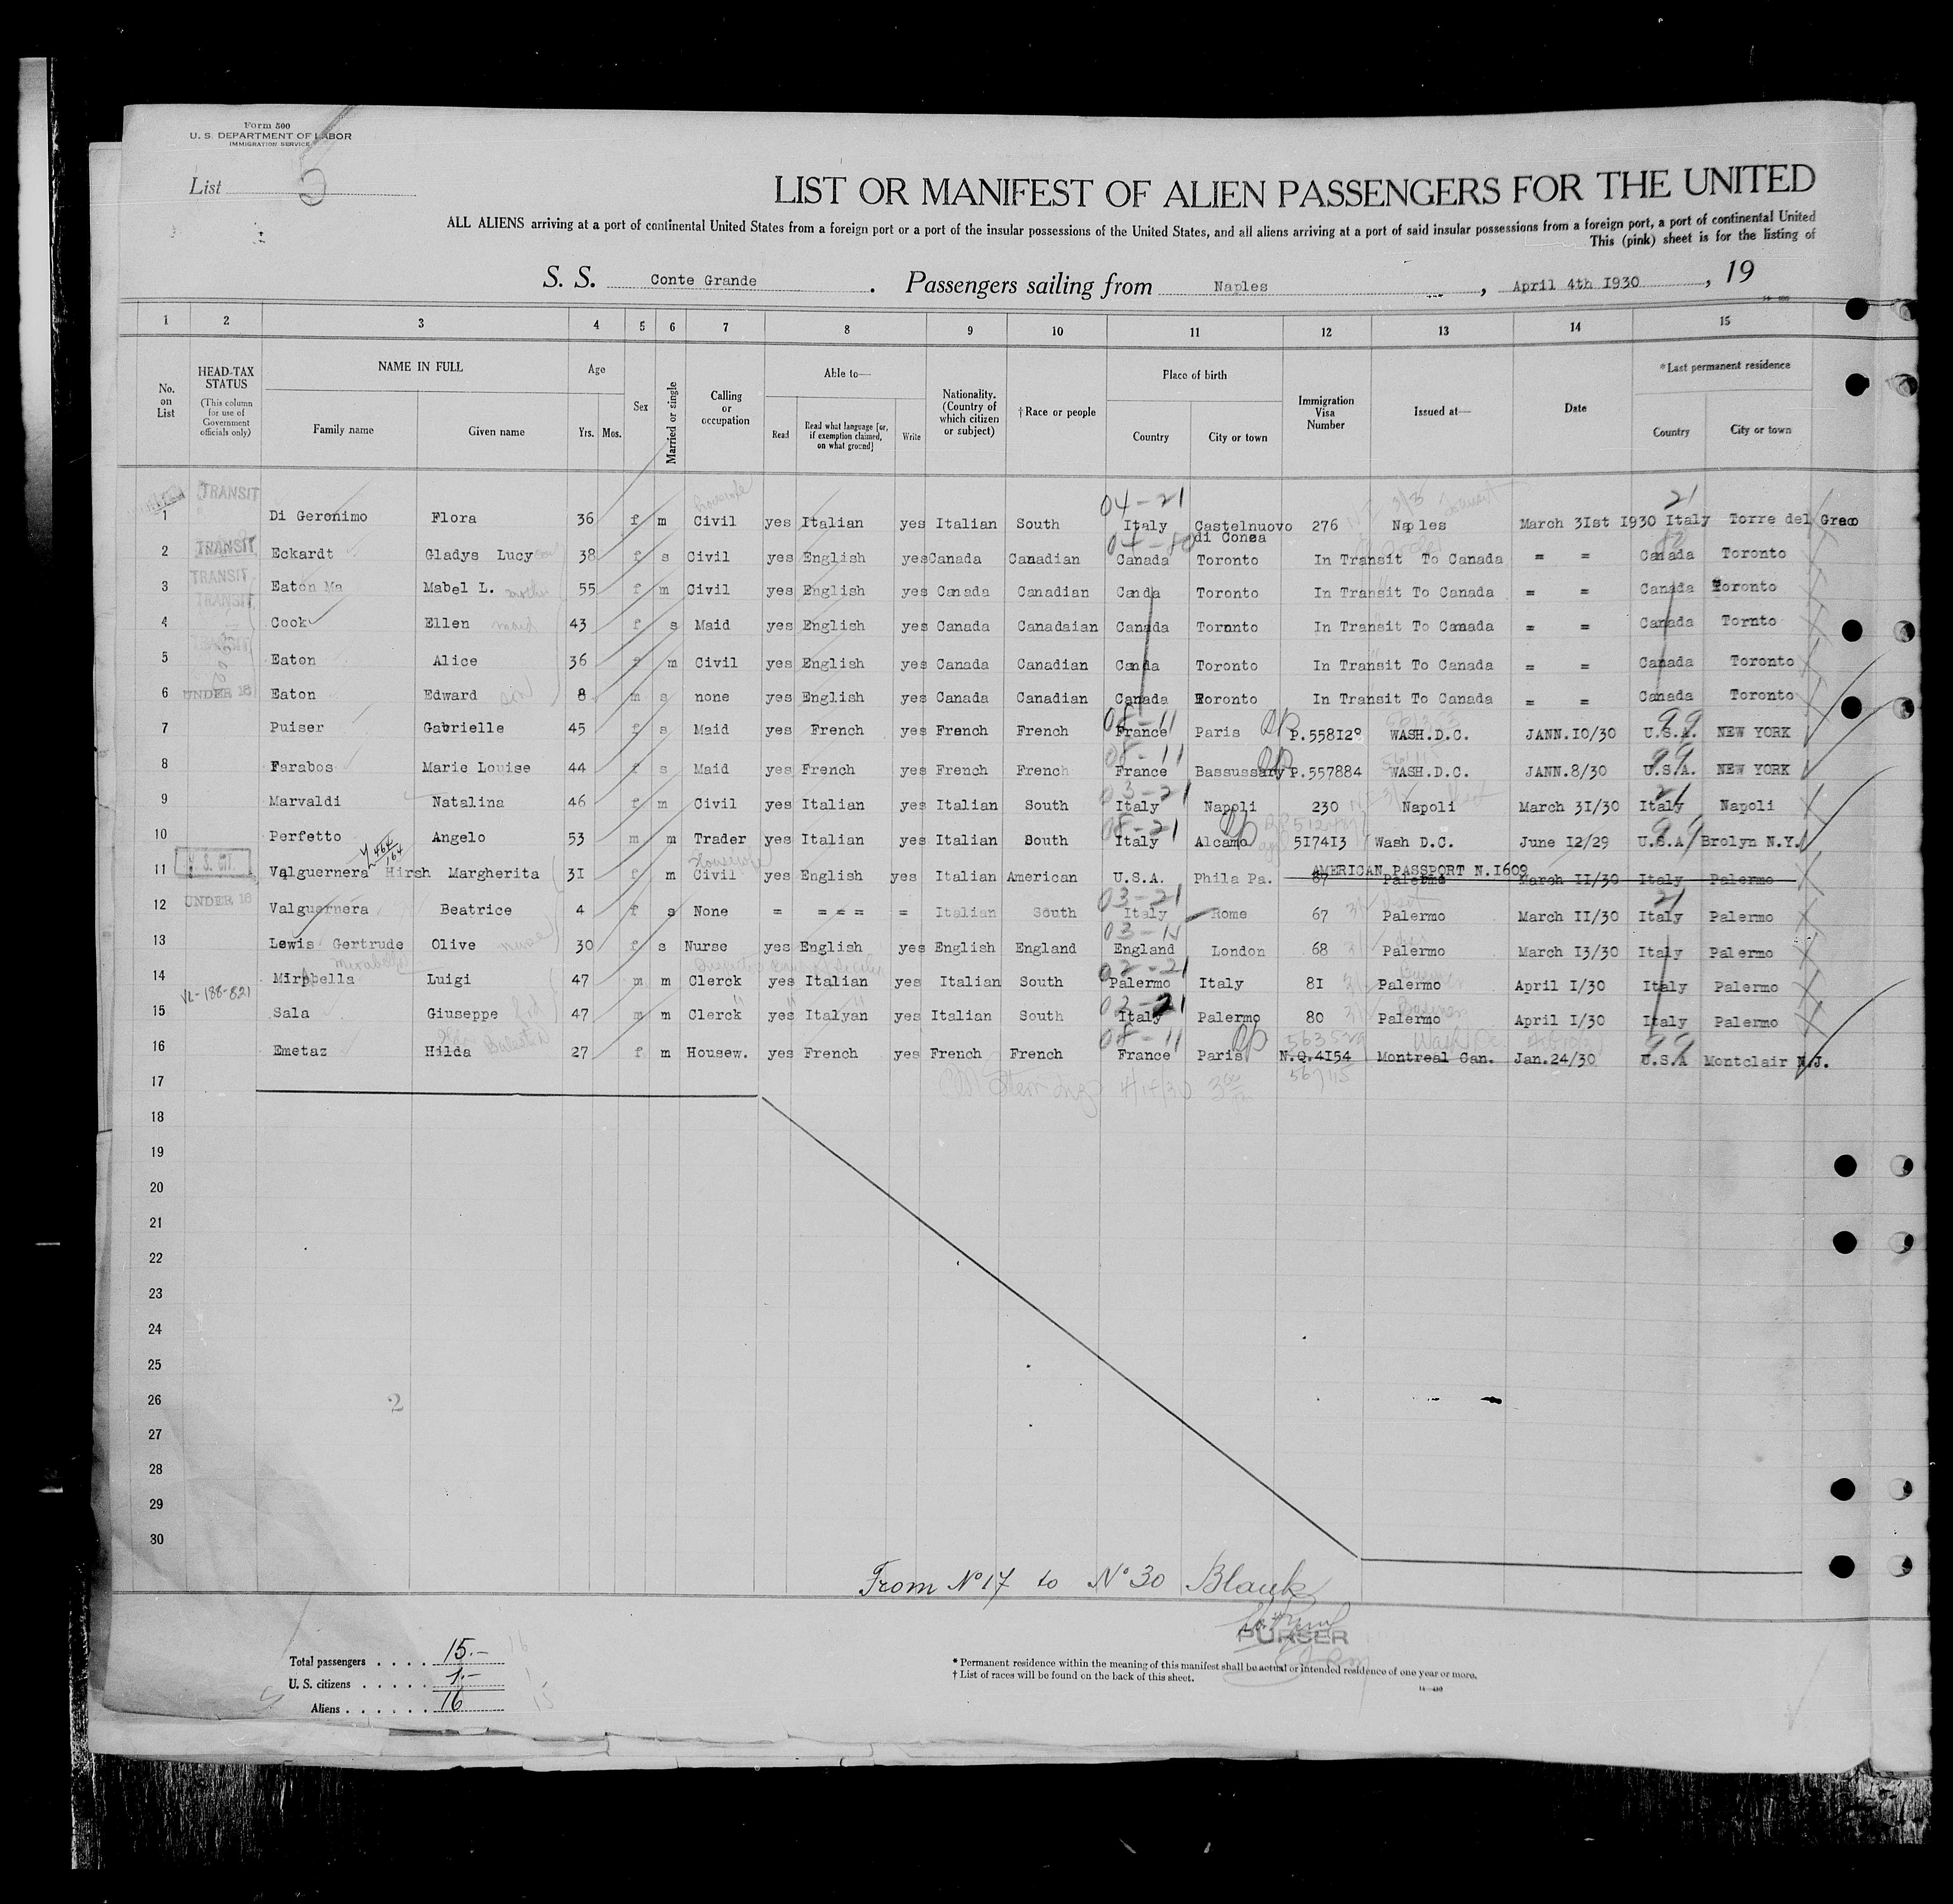 Form 500
U. S. DEPARTMENT OF LABOR
IMMIGRATION SERVICE
List
LIST OR MANIFEST OF ALIEN PASSENGERS FOR THE UNITED
ALL ALIENS arriving at a port of continental United States from a foreign port or a port of the insular possessions of the United States, and all aliens arriving at a port of said insular possessions from a foreign port, a port of continental United
This (pink) sheet is for the listing of
S. S. Conte Grande . Passengers sailing from Naples , April 4th 1930 , 19
1 2 3 4 5 6 7 8 9 10 11 12 13 14 15
No. on List
HEAD-TAX STATUS (This column for use of Government officials only)
NAME IN FULL Family name Given name
Age Yrs. Mos.
Sex
Married or single
Calling or occupation
Able to— Read Read what language [or, if exemption claimed, on what ground] Write
Nationality. (Country of which citizen or subject)
†Race or people
Place of birth Country City or town
Immigration Visa Number
Issued at—
Date
*Last permanent residence Country City or town
04-21 21
1 TRANSIT Di Geronimo Flora 36 f m Civil yes Italian yes Italian South Italy Castelnuovo di Conza 276 Naples March 31st 1930 Italy Torre del Greco
2 TRANSIT Eckardt Gladys Lucy 38 f s Civil yes English yes Canada Canadian Canada Toronto In Transit To Canada = = Canada Toronto
3 TRANSIT Eaton Ma Mabel L. mother 55 f m Civil yes English yes Canada Canadian Canda Toronto In Transit To Canada = = Canada Toronto
4 TRANSIT Cook Ellen maid 43 f s Maid yes English yes Canada Canadaian Canada Toronto In Transit To Canada = = Canada Tornto
5 TRANSIT Eaton Alice 36 f m Civil yes English yes Canada Canadian Canda Toronto In Transit To Canada = = Canada Toronto
6 UNDER 16 Eaton Edward son 8 m s none yes English yes Canada Canadian Canada Toronto In Transit To Canada = = Canada Toronto
08-11 99
7 Puiser Gabrielle 45 f s Maid yes French yes French French France Paris P.55812° WASH.D.C. JANN.10/30 U.S.A. NEW YORK
08-11 99
8 Farabos Marie Louise 44 f s Maid yes French yes French French France Bassussary P.557884 WASH.D.C. JANN.8/30 U.S.A. NEW YORK
03-21 21
9 Marvaldi Natalina 46 f m Civil yes Italian yes Italian South Italy Napoli 230 Napoli March 31/30 Italy Napoli
08-21 99
10 Perfetto Angelo 53 m m Trader yes Italian yes Italian South Italy Alcamo 517413 Wash D.C. June 12/29 U.S.A Brolyn N.Y.
Housewife
11 U. S. CIT. Valguernera Hirsh Margherita 31 f m Civil yes English yes Italian American U.S.A. Phila Pa. AMERICAN PASSPORT N.1609 67 Palermo March 11/30 Italy Palermo
03-21 21
12 UNDER 16 Valguernera Beatrice 4 f s None = = = = = Italian South Italy Rome 67 Palermo March 11/30 Italy Palermo
13 Lewis Gertrude Olive nurse 30 f s Nurse yes English yes English England England London 68 Palermo March 13/30 Italy Palermo
Mirabella 02-21
14 Mirabella Luigi 47 m m Clerck yes Italian yes Italian South Palermo Italy 81 Palermo April 1/30 Italy Palermo
VL-188-821 02-21
15 Sala Giuseppe 47 m m Clerck yes Italyan yes Italian South Italy Palermo 80 Palermo April 1/30 Italy Palermo
08-11 563529 99
16 Emetaz Hilda 27 f m Housew. yes French yes French French France Paris N.Q.4154 Montreal Can. Jan.24/30 U.S.A Montclair N.J.
17 567115
18
19
20
21
22
23
24
25
26
2
27
28
29
30
From No 17 to No 30 Blank
PURSER
Total passengers . . . . 15.-
U. S. citizens . . . . . 1.-
Aliens . . . . . . 16
* Permanent residence within the meaning of this manifest shall be actual or intended residence of one year or more.
† List of races will be found on the back of this sheet.